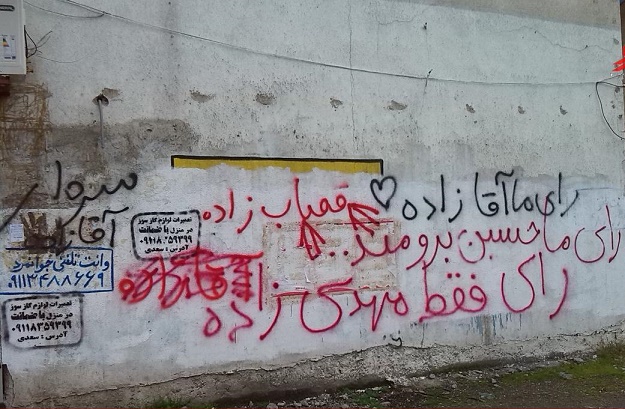 رای ما آقا زاده
قصاب زاده
رای ما حسین برومند..
رای فقط مهدی زاده
سردار
آقازاده
تعمیرات لوازم گاز سوز
در منزل با ضمانت
۰۹۱۱۸۳۵۹۳۹۹
آدرس : سعدی
وانت تلفنی جوانمرد
۰۹۱۱۳۴۸۸۶۶۹
تعمیرات لوازم گاز سوز
در منزل با ضمانت
۰۹۱۱۸۳۵۹۳۹۹
آدرس : سعدی